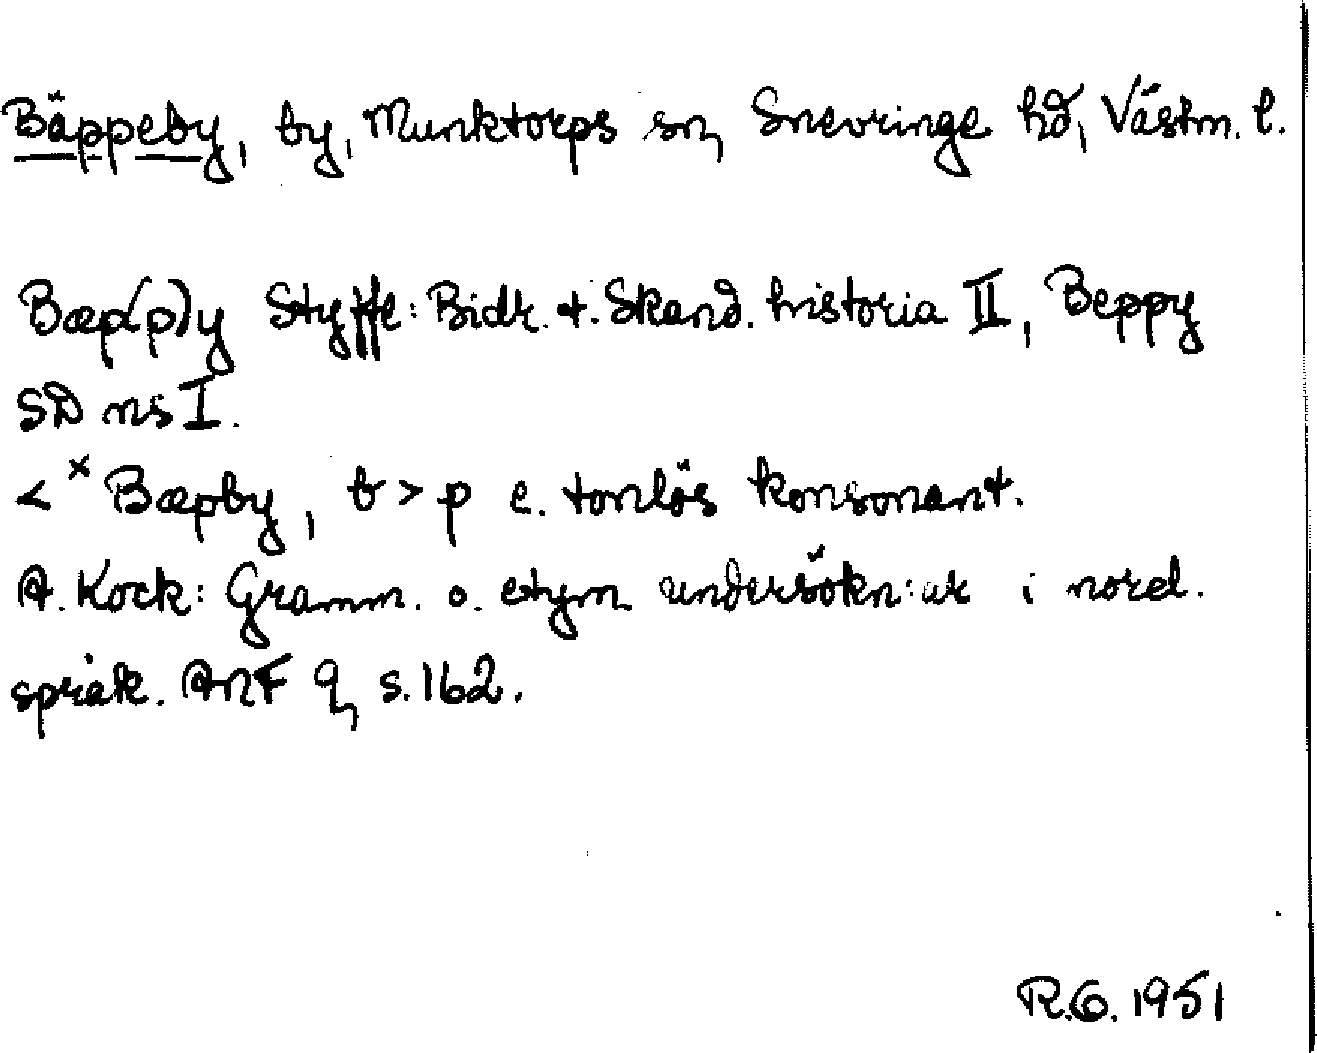 Bäppeby, by, Munktorps sn, Snevringe hd, Västm. l.
Bæp(p)y Styffe: Bidr. t. Skand. historia II, Beppy
SD ns I.
< ˣBæpby, b > p e. tonlös konsonant.
A. Kock: Gramm. o. etym undersökn:ar i nord.
språk. ANF 9, s. 162.
R.G. 1951